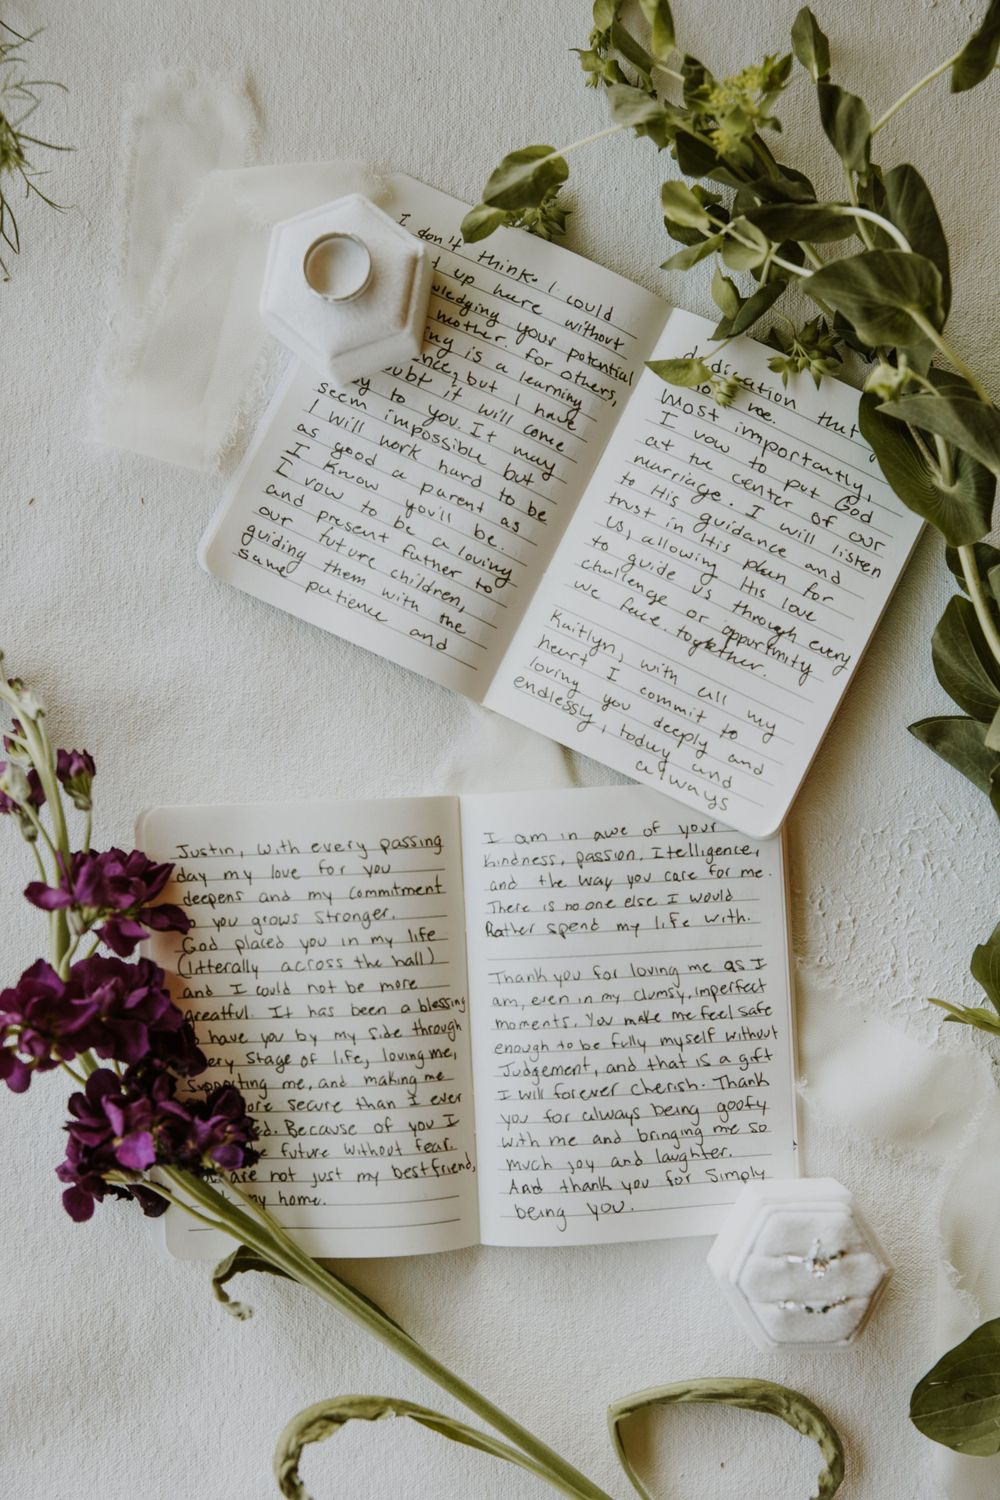 I don't think I could
up here without
your potential
mother. For others,
is a learning
but I have
doubt it will come
to you. It may
seem impossible but
I will work hard to be
as good a parent as
I know you'll be.
I vow to be a loving
and present father to
our future children,
guiding them with the
same patience and
dedication that
me.
Most importantly,
I vow to put God
at the center of our
marriage. I will listen
to His guidance and
trust in His plan for
us, allowing His love
to guide us through every
challenge or opportunity
we face together.
Kaitlyn, with all my
heart I commit to
loving you deeply and
endlessly, today and
always
Justin, with every passing
day my love for you
deepens and my commitment
to you grows stronger.
God placed you in my life
(litterally across the hall)
and I could not be more
greatful. It has been a blessing
to have you by my side through
every stage of life, loving me,
supporting me, and making me
more secure than I ever
Because of you I
future without fear.
are not just my bestfriend,
my home.
I am in awe of your
kindness, passion, Itelligence,
and the way you care for me.
There is no one else I would
Rather spend my life with.
Thank you for loving me as I
am, even in my clumsy, imperfect
moments. You make me feel safe
enough to be fully myself without
Judgement, and that is a gift
I will forever cherish. Thank
you for always being goofy
with me and bringing me so
much joy and laughter.
And thank you for simply
being you.